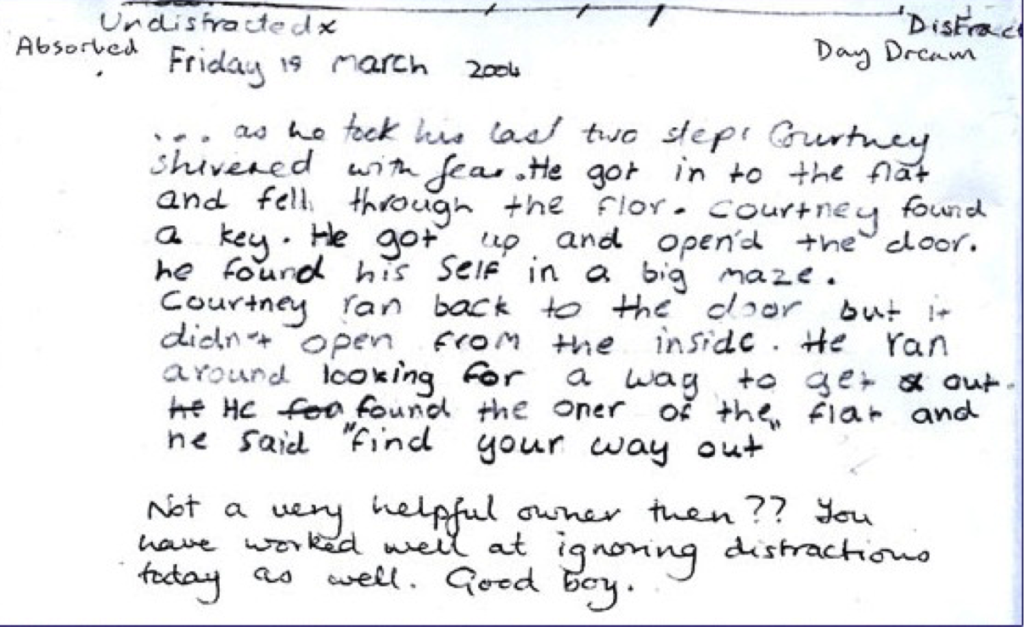 Undistracted x Distrac
Absorbed Day Dream
Friday 19 March 2004
... as he took his last two steps Courtney
shivered with fear. He got in to the flat
and fell through the flor. Courtney found
a key. He got up and open'd the door.
he found his self in a big maze.
Courtney ran back to the door but it
didn't open from the inside. He ran
around looking for a way to get out.
he He foo found the oner of the flat and
he said "find your way out"
Not a very helpful owner then?? You
have worked well at ignoring distractions
today as well. Good boy.